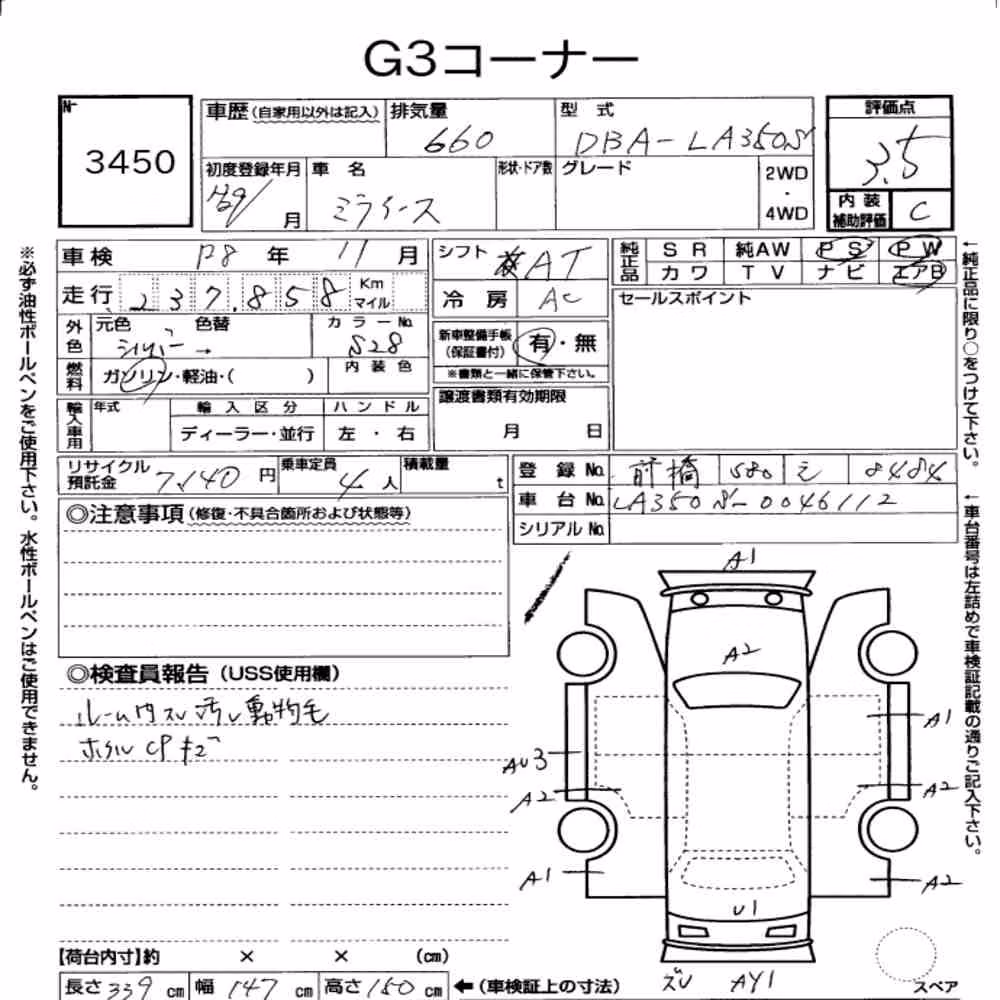 G3コーナー
No 3450
車歴(自家用以外は記入) 排気量 660 型式 DBA-LA350S 評価点 3.5
初度登録年月 H29/ 月 車名 ミライース 形状・ドア数 グレード 2WD・4WD 内装補助評価 C
車検 R8年 11月 シフト AT 純正品 SR 純AW PS PW
カワ TV ナビ エアB
走行 237,858 Km マイル 冷房 AC セールスポイント
外色 元色 シルバー → 色替 カラーNo. S28 新車整備手帳(保証書付) 有・無
※書類と一緒に保管下さい。
燃料 ガソリン・軽油・( ) 内装色
輸入車用 年式 輸入区分 ハンドル 譲渡書類有効期限
ディーラー・並行 左・右 月 日
リサイクル預託金 7,140円 乗車定員 4人 積載量 t 登録No. 前橋 580 え 8484
車台No. LA350S-0046112
シリアルNo.
◎注意事項(修復・不具合箇所および状態等)
◎検査員報告(USS使用欄)
ルーム内スレ汚レ動物毛
ホイルCPキズ
A1
A2
A1
AU3
A2
A2
A1
A2
U1
ズレ AY1
スペア
【荷台内寸】約 × × (cm)
長さ 339 cm 幅 147 cm 高さ 150 cm ←(車検証上の寸法)
※必ず油性ボールペンをご使用下さい。水性ボールペンはご使用できません。
←純正品に限り○をつけて下さい。
←車台番号は左詰めで車検証記載の通りご記入下さい。